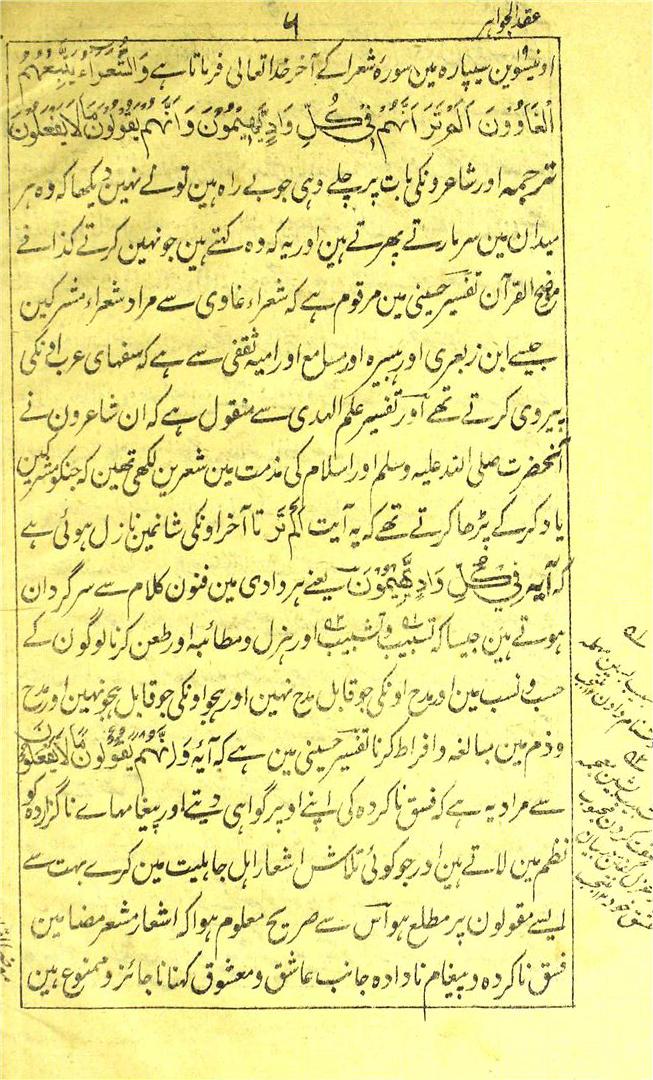 عقد الجواہر
۶
اونیسوین سیپارہ مین سورہ شعرا کے آخر خدا تعالی فرماتا ہے وَالشُّعَرَاءُ يَتَّبِعُهُمُ
الْغَاوُونَ اَلَمْ تَرَ اَنَّهُمْ فِي كُلِّ وَادٍ يَّهِيمُونَ وَاَنَّهُمْ يَقُولُونَ مَا لَا يَفْعَلُونَ
ترجمہ اور شاعرونکی بات پر چلے وہی جو بے راہ ہین تونے نہین دیکھا کہ وہ ہر
میدان مین سر مارتے پھرتے ہین اور یہ کہ وہ کہتے ہین جو نہین کرتے کذا فے
موضح القرآن تفسیر حسینی مین مرقوم ہے کہ شعراء غاوی سے مراد شعراء مشرکین
جیسے ابن زبعری اور ہبیرہ اور مسامع اور امیہ ثقفی سے ہے کہ سفہای عرب اونکی
پیروی کرتے تھے اور تفسیر علم الہدی سے منقول ہے کہ ان شاعرون نے
آنحضرت صلی اللہ علیہ وسلم اور اسلام کی مذمت مین شعرین لکھی تھین کہ جنکو مشرکین
یاد کر کے پڑھا کرتے تھے کہ یہ آیت الم تر تا آخر اونکی شانمین نازل ہوئی ہے
کہ آیہ فِي كُلِّ وَادٍ يَّهِيمُونَ یعنے ہر وادی مین فنون کلام سے سرگردان
ہوتے ہین جیسا کہ تسبیب و تشبیب اور ہزل و مطائبہ اور طعن کرنا لوگون کے
حسب و نسب مین اور مدح اونکی جو قابل مدح نہین اور ہجو اونکی جو قابل ہجو نہین اور مدح
و ذم مین مبالغہ و افراط کرنا تفسیر حسینی مین ہے کہ آیہ وَاَنَّهُمْ يَقُولُونَ مَا لَا يَفْعَلُونَ
سے مراد یہ ہے کہ فسق ناکردہ کی اپنے اوپر گواہی دیتے اور پیغامہاے ناگزاردہ کو
نظم مین لاتے ہین اور جو کوئی تلاش اشعار اہل جاہلیت مین کرے بہت سے
ایسے مقولون پر مطلع ہو اس سے صریح معلوم ہوا کہ اشعار مشعر مضامین
فسق ناکردہ و پیغام نادادہ جانب عاشق و معشوق کہنا ناجائز و ممنوع ہین